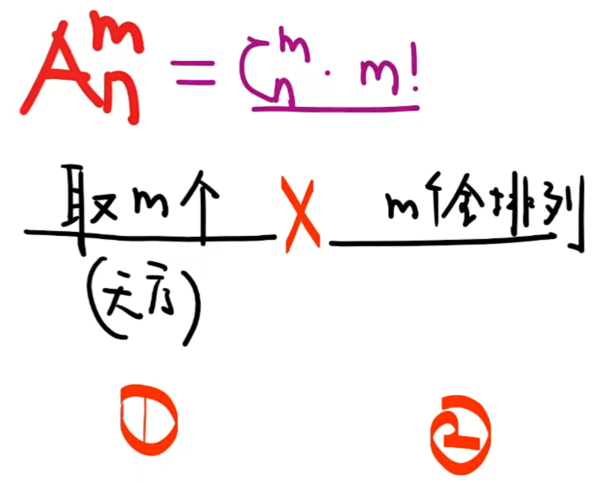 Aₙᵐ = Cₙᵐ · m!
取m个 × m个全排列
(无序)
① ②